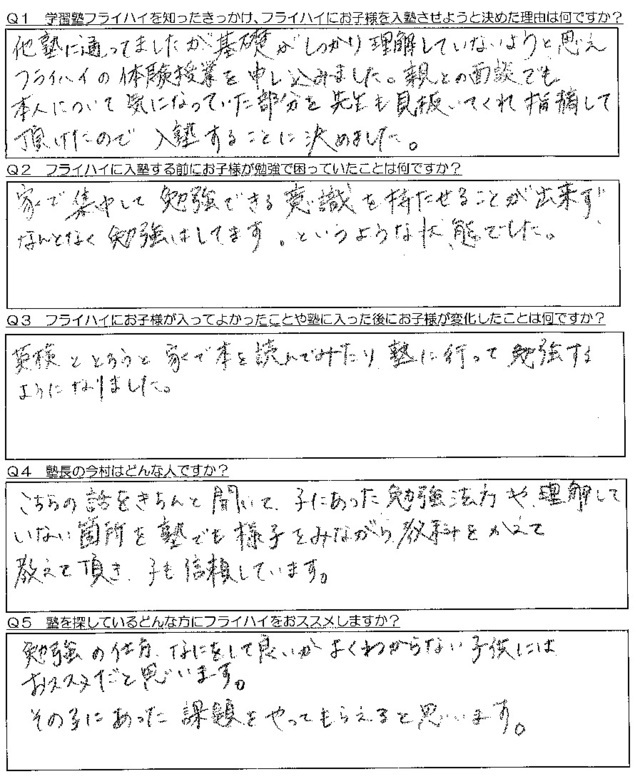 Q1 学習塾フライハイを知ったきっかけ、フライハイにお子様を入塾させようと決めた理由は何ですか?
他塾に通ってましたが基礎がしっかり理解していないようと思え
フライハイの体験授業を申し込みました。親との面談でも
本人について気になっていた部分を先生も見抜いてくれ指摘して
頂けたので入塾することに決めました。
Q2 フライハイに入塾する前にお子様が勉強で困っていたことは何ですか?
家で集中して勉強できる意識を持たせることが出来ず
なんとなく勉強はしてます。というような状態でした。
Q3 フライハイにお子様が入ってよかったことや塾に入った後にお子様が変化したことは何ですか?
英検をとろうと家で本を読んでみたり塾に行って勉強する
ようになりました。
Q4 塾長の今村はどんな人ですか?
こちらの話をきちんと聞いて、子にあった勉強法方や、理解して
いない箇所を塾でも様子をみながら、教科をかえて
教えて頂き、子も信頼しています。
Q5 塾を探しているどんな方にフライハイをおススメしますか?
勉強の仕方、なにをして良いかよくわからない子供には
おススメだと思います。
その子にあった課題をやってもらえると思います。